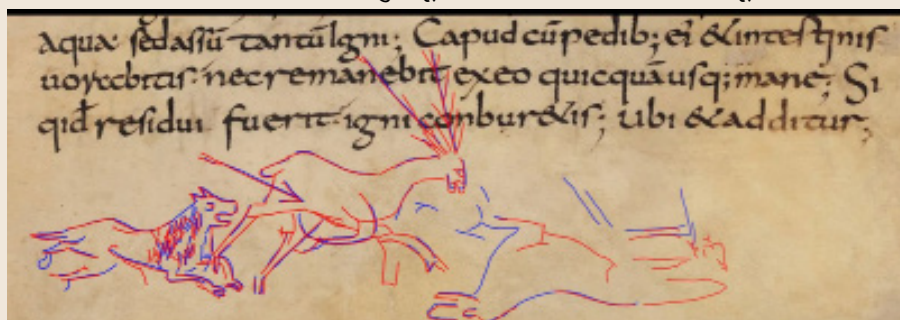 aqua: sedassū tantū Igni; Capud cū pedib; ei & intestinis
uorabitis. nec remanebit ex eo quicquā usq; mane; Si
qid residui fuerit igni conbur&is; Ubi & additur;